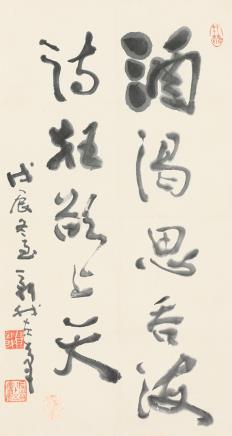 酒渴思吞海
詩狂欲上天
戊辰冬至